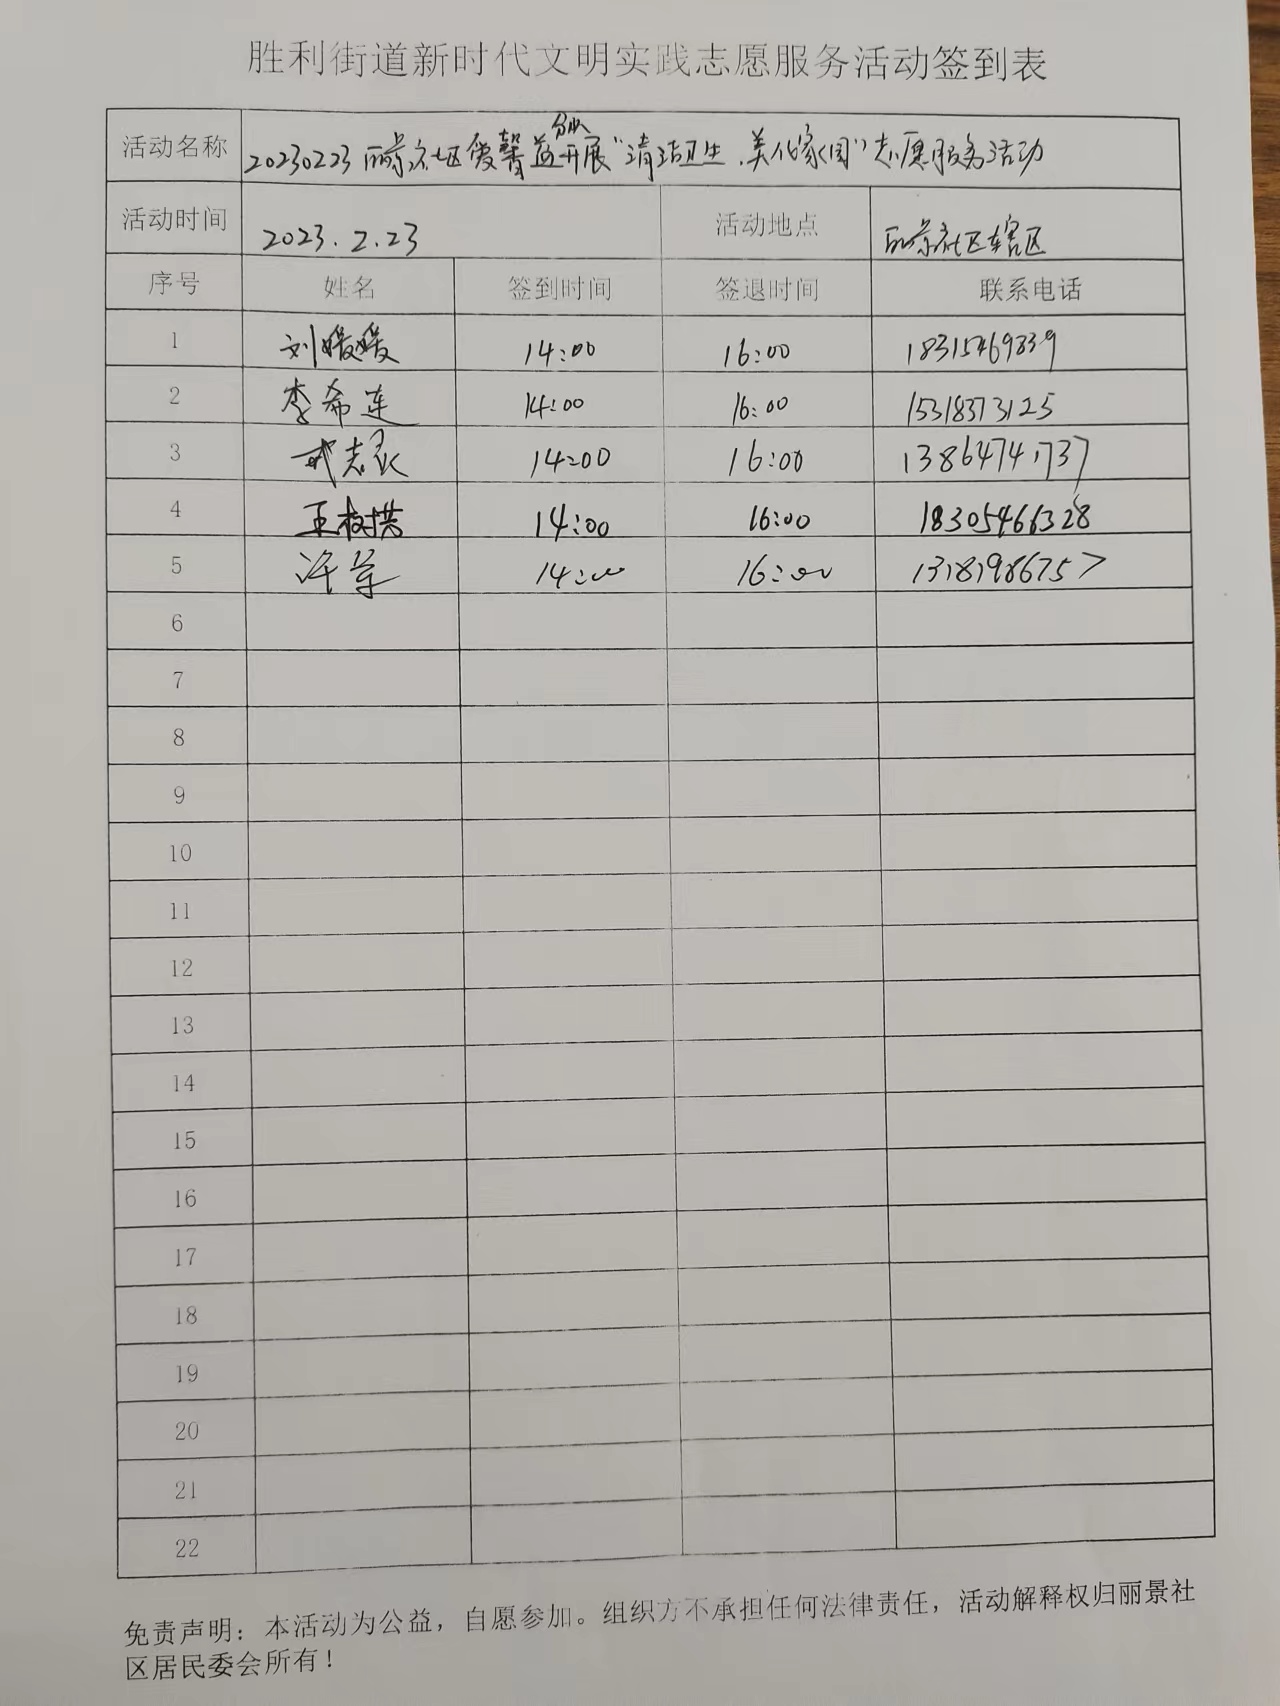 胜利街道新时代文明实践志愿服务活动签到表
活动名称 20230223丽景社区爱馨益分队开展“清洁卫生、美化家园”志愿服务活动
活动时间 2023.2.23 活动地点 丽景社区辖区
序号 姓名 签到时间 签退时间 联系电话
1 刘媛媛 14:00 16:00 18315469339
2 李希连 14:00 16:00 15318373125
3 14:00 16:00 13864741737
4 王树 14:00 16:00 18305466328
5 许 14:00 16:00 13181986757
6
7
8
9
10
11
12
13
14
15
16
17
18
19
20
21
22
免责声明：本活动为公益，自愿参加。组织方不承担任何法律责任，活动解释权归丽景社
区居民委会所有！